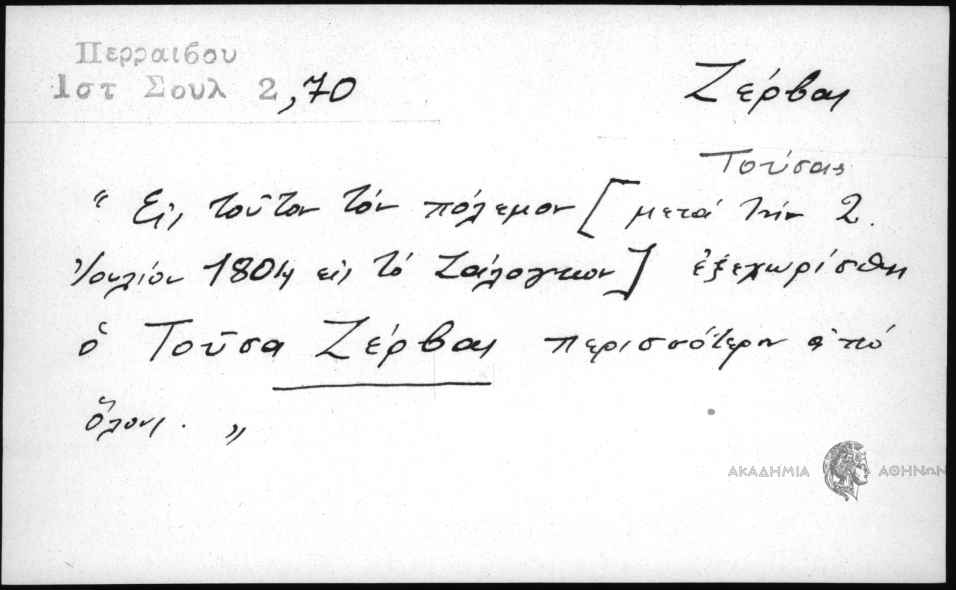 Περραιβου
Ιστ Σουλ 2,70
Ζέρβας
Τούσας
" Εἰς τοῦτον τόν πόλεμον [ μετά τήν 2.
Ἰουλίου 1804 εἰς τό Ζάλογγον ] ἐξεχωρίσθη
ὁ Τοῦσα Ζέρβας περισσότερον ἀπό
ὅλους. „
ΑΚΑΔΗΜΙΑ ΑΘΗΝΩΝ